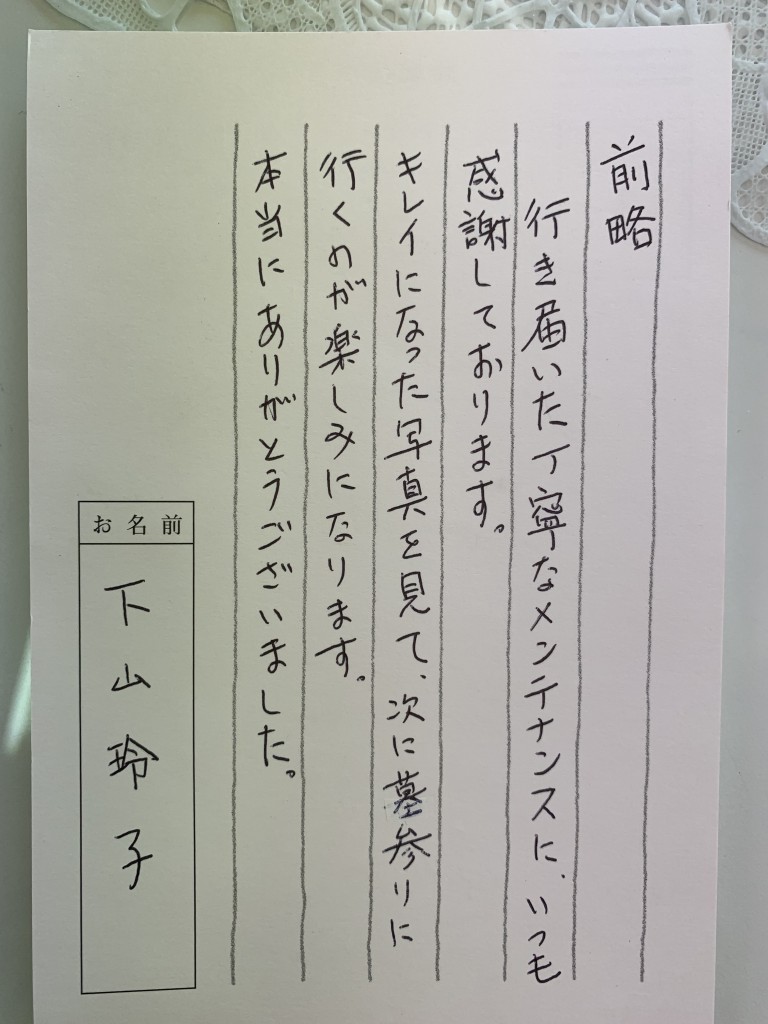 前略
行き届いた丁寧なメンテナンスに、いつも
感謝しております。
キレイになった写真を見て、次に墓参りに
行くのが楽しみになります。
本当にありがとうございました。
お名前
下山玲子